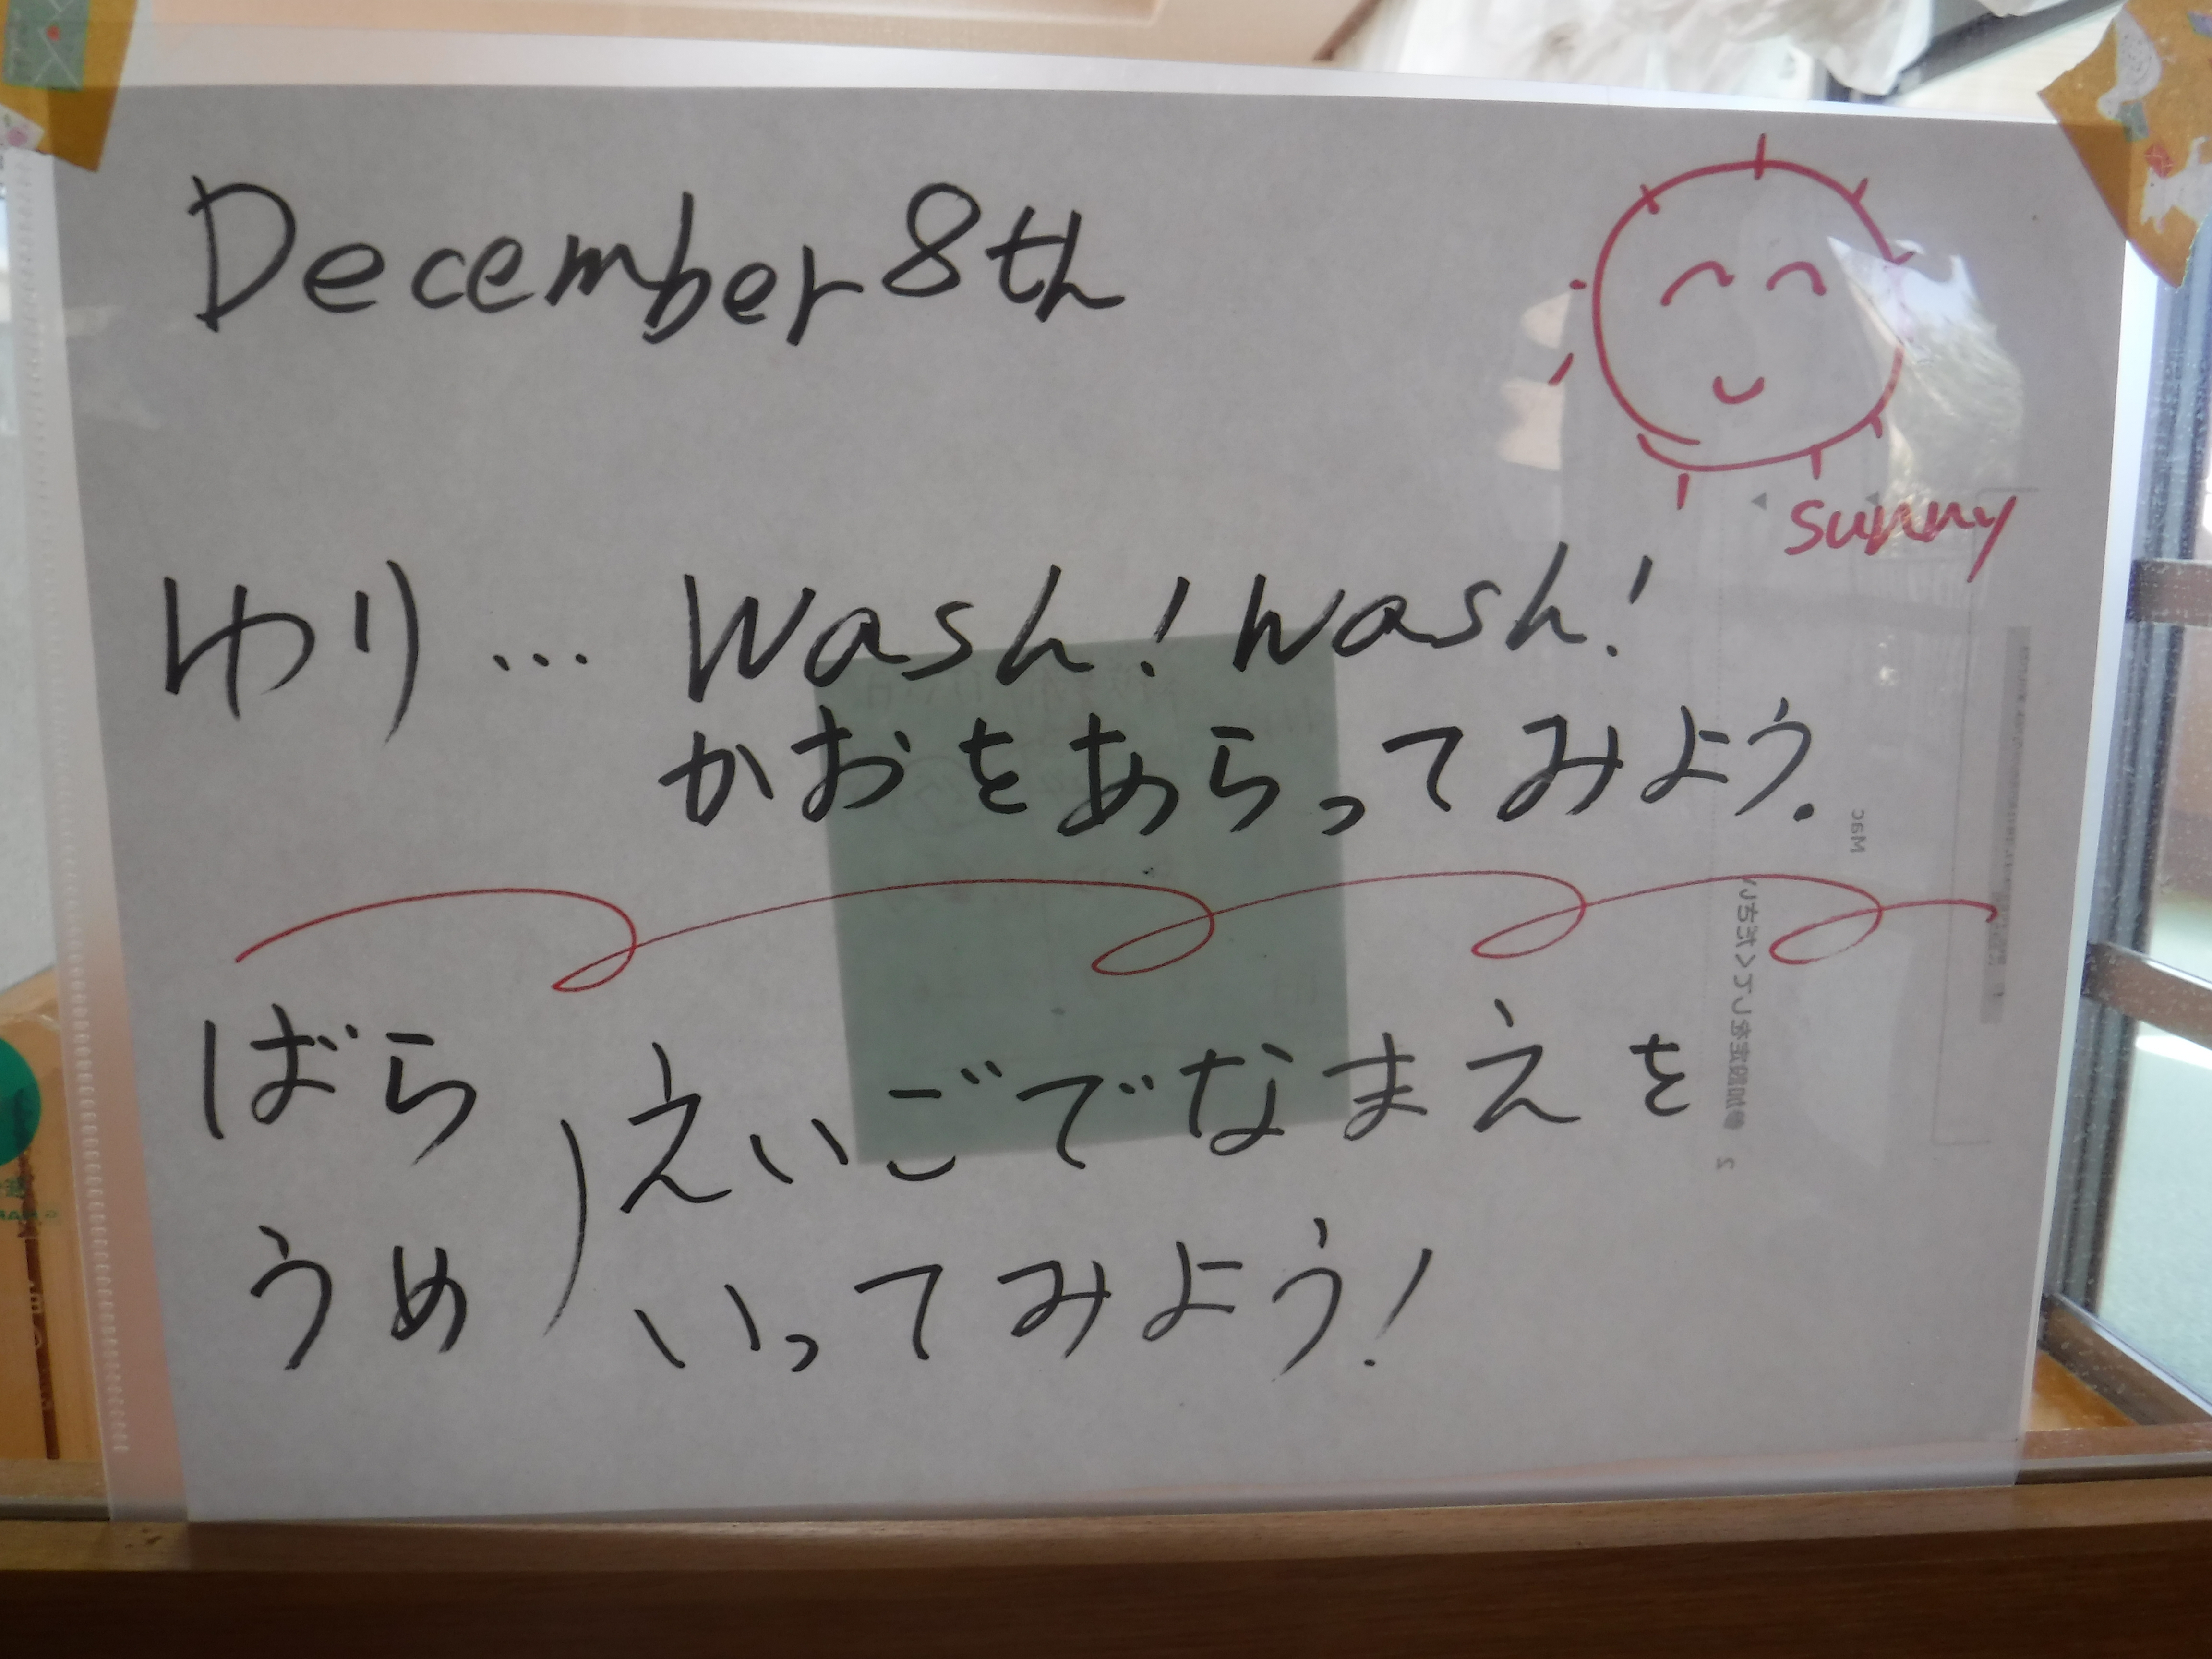 December 8th
sunny
ゆり… Wash! Wash!
かおをあらってみよう.
ばら
うめ
えいごでなまえを
いってみよう!
Mac